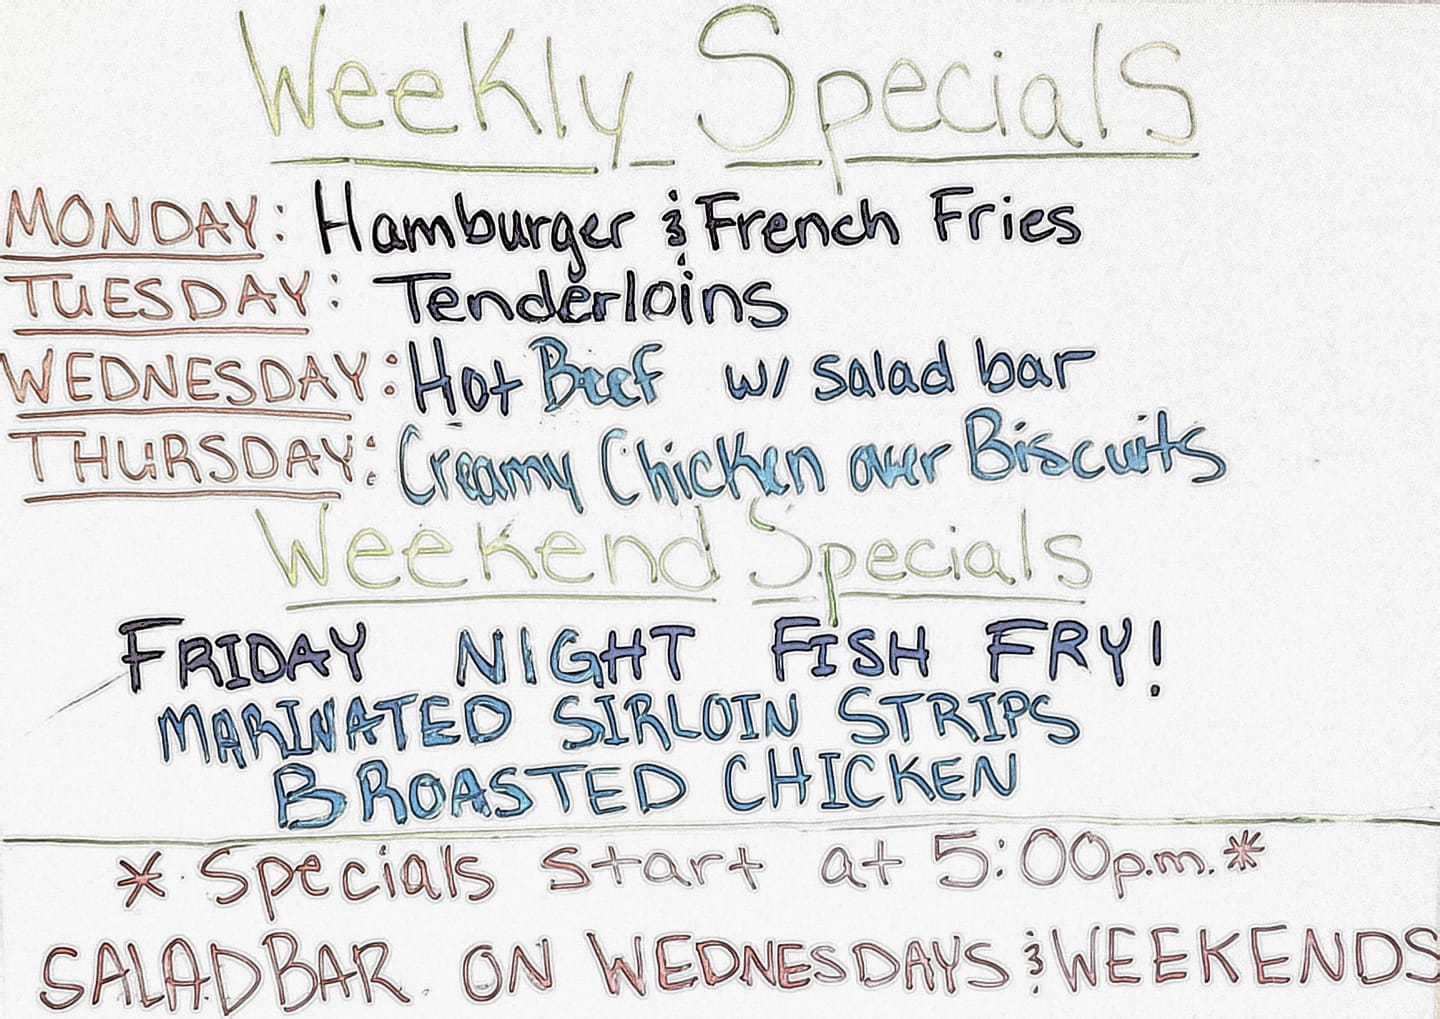 Weekly Specials
MONDAY: Hamburger & French Fries
TUESDAY: Tenderloins
WEDNESDAY: Hot Beef w/ salad bar
THURSDAY: Creamy Chicken over Biscuits
Weekend Specials
FRIDAY NIGHT FISH FRY!
MARINATED SIRLOIN STRIPS
BROASTED CHICKEN
* Specials start at 5:00p.m.*
SALAD BAR ON WEDNESDAYS & WEEKENDS